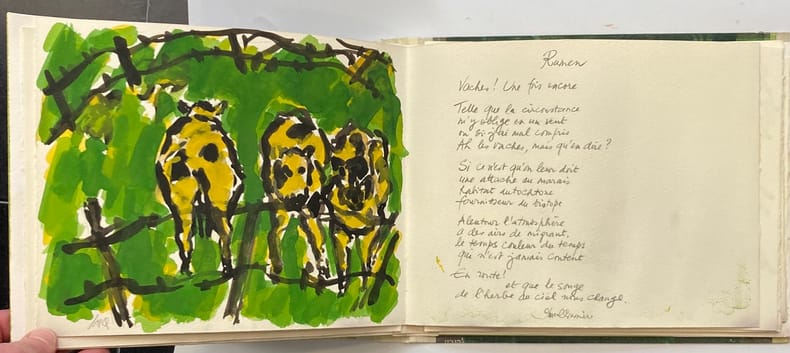 Rumen
Vaches ! Une fois encore
Telle que la circonstance
m'y oblige en un vent
ou si j'ai mal compris
Ah les vaches, mais qu'en dire ?
Si ce n'est qu'on leur doit
une attache au marais
habitant autochtone
fournisseur du biotope
Alentour l'atmosphère
a des airs de migrant,
le temps couleur du temps
qui n'est jamais content
En route !
et que le songe
de l'herbe au ciel nous change.